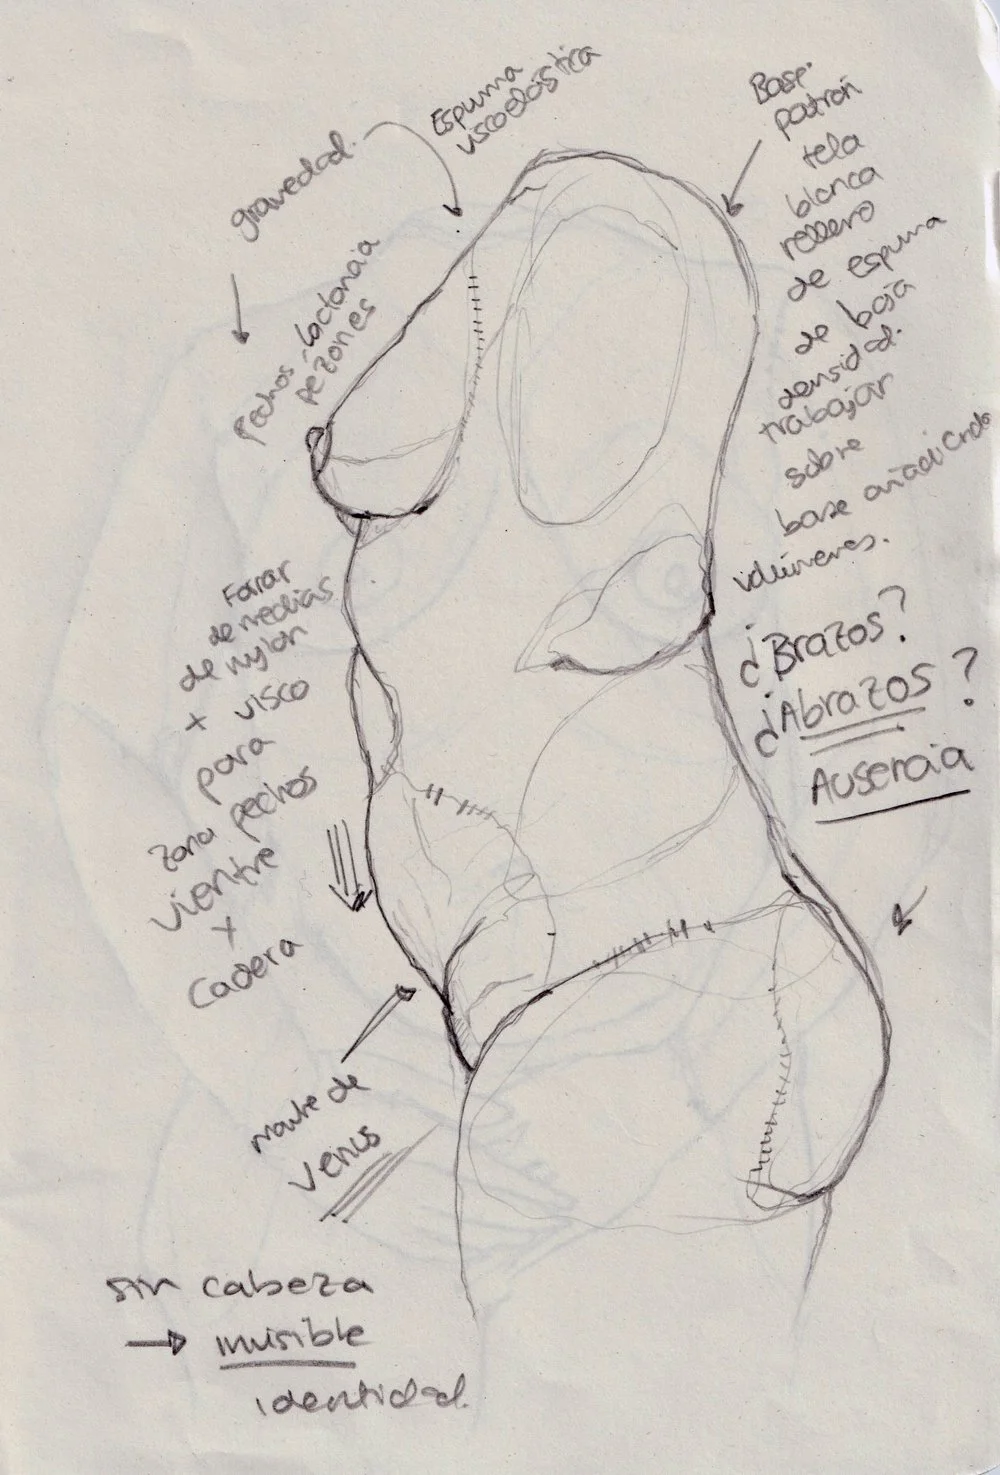 Espuma
viscoelástica
gravedad.
Pechos-lactancia
pezones
Base:
patrón
tela
blanca
relleno
de espuma
de baja
densidad.
trabajar
sobre
base añadiendo
volúmenes.
¿Brazos?
¿Abrazos?
Ausencia
Forrar
de medias
de nylon
+ visco
para
zona pechos
vientre
+
Cadera
monte de
Venus
sin cabeza
→ invisible
identidad.